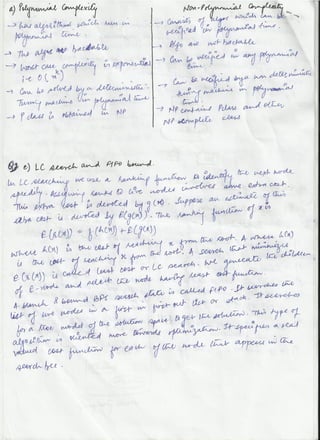 a) Polynomial Complexity
→ Has algorithms which run in
polynomial time.
→ The algos are trackable
→ Worst case complexity is exponential
i.e O(n^k)
→ Can be solved by a deterministic
Turing machine in polynomial time
→ P class is obtained in NP
Non-Polynomial Complexity
→ Consists of algos which can be
verified in polynomial time
→ Algo are not trackable
→ Can be verified in any polynomial
time.
→ Can be verified by a non deterministic
turing machine in polynomial
time
→ NP contains P class and other
NP complete class
e) LC search and FIFO bound.
In LC searching we use a ranking function to identify the next node
speedily. Assigning ranks to live nodes involves some extra cost.
This extra cost is denoted by g(x). Suppose an estimate of this
extra cost is denoted by E(g(x)). The ranking function of x is
E(k(x)) = f(h(x)) + E(g(x))
where h(x) is the cost of reaching x from the root. A where h(x)
is the cost of reaching x from the root. A search that minimizes
E(x(x)) is called least cost or LC search. We generate the children
of E-node and select the node having least cost function.
A branch & bound BFS search state is called FIFO. It searches the
list of live nodes in a first in first out list or stack. It searches
for a tree model of the solution space to get the solution. This type of
algorithm is oriented more towards optimization. It specifies a real
valued cost function for each of the node that appears in the
search tree.